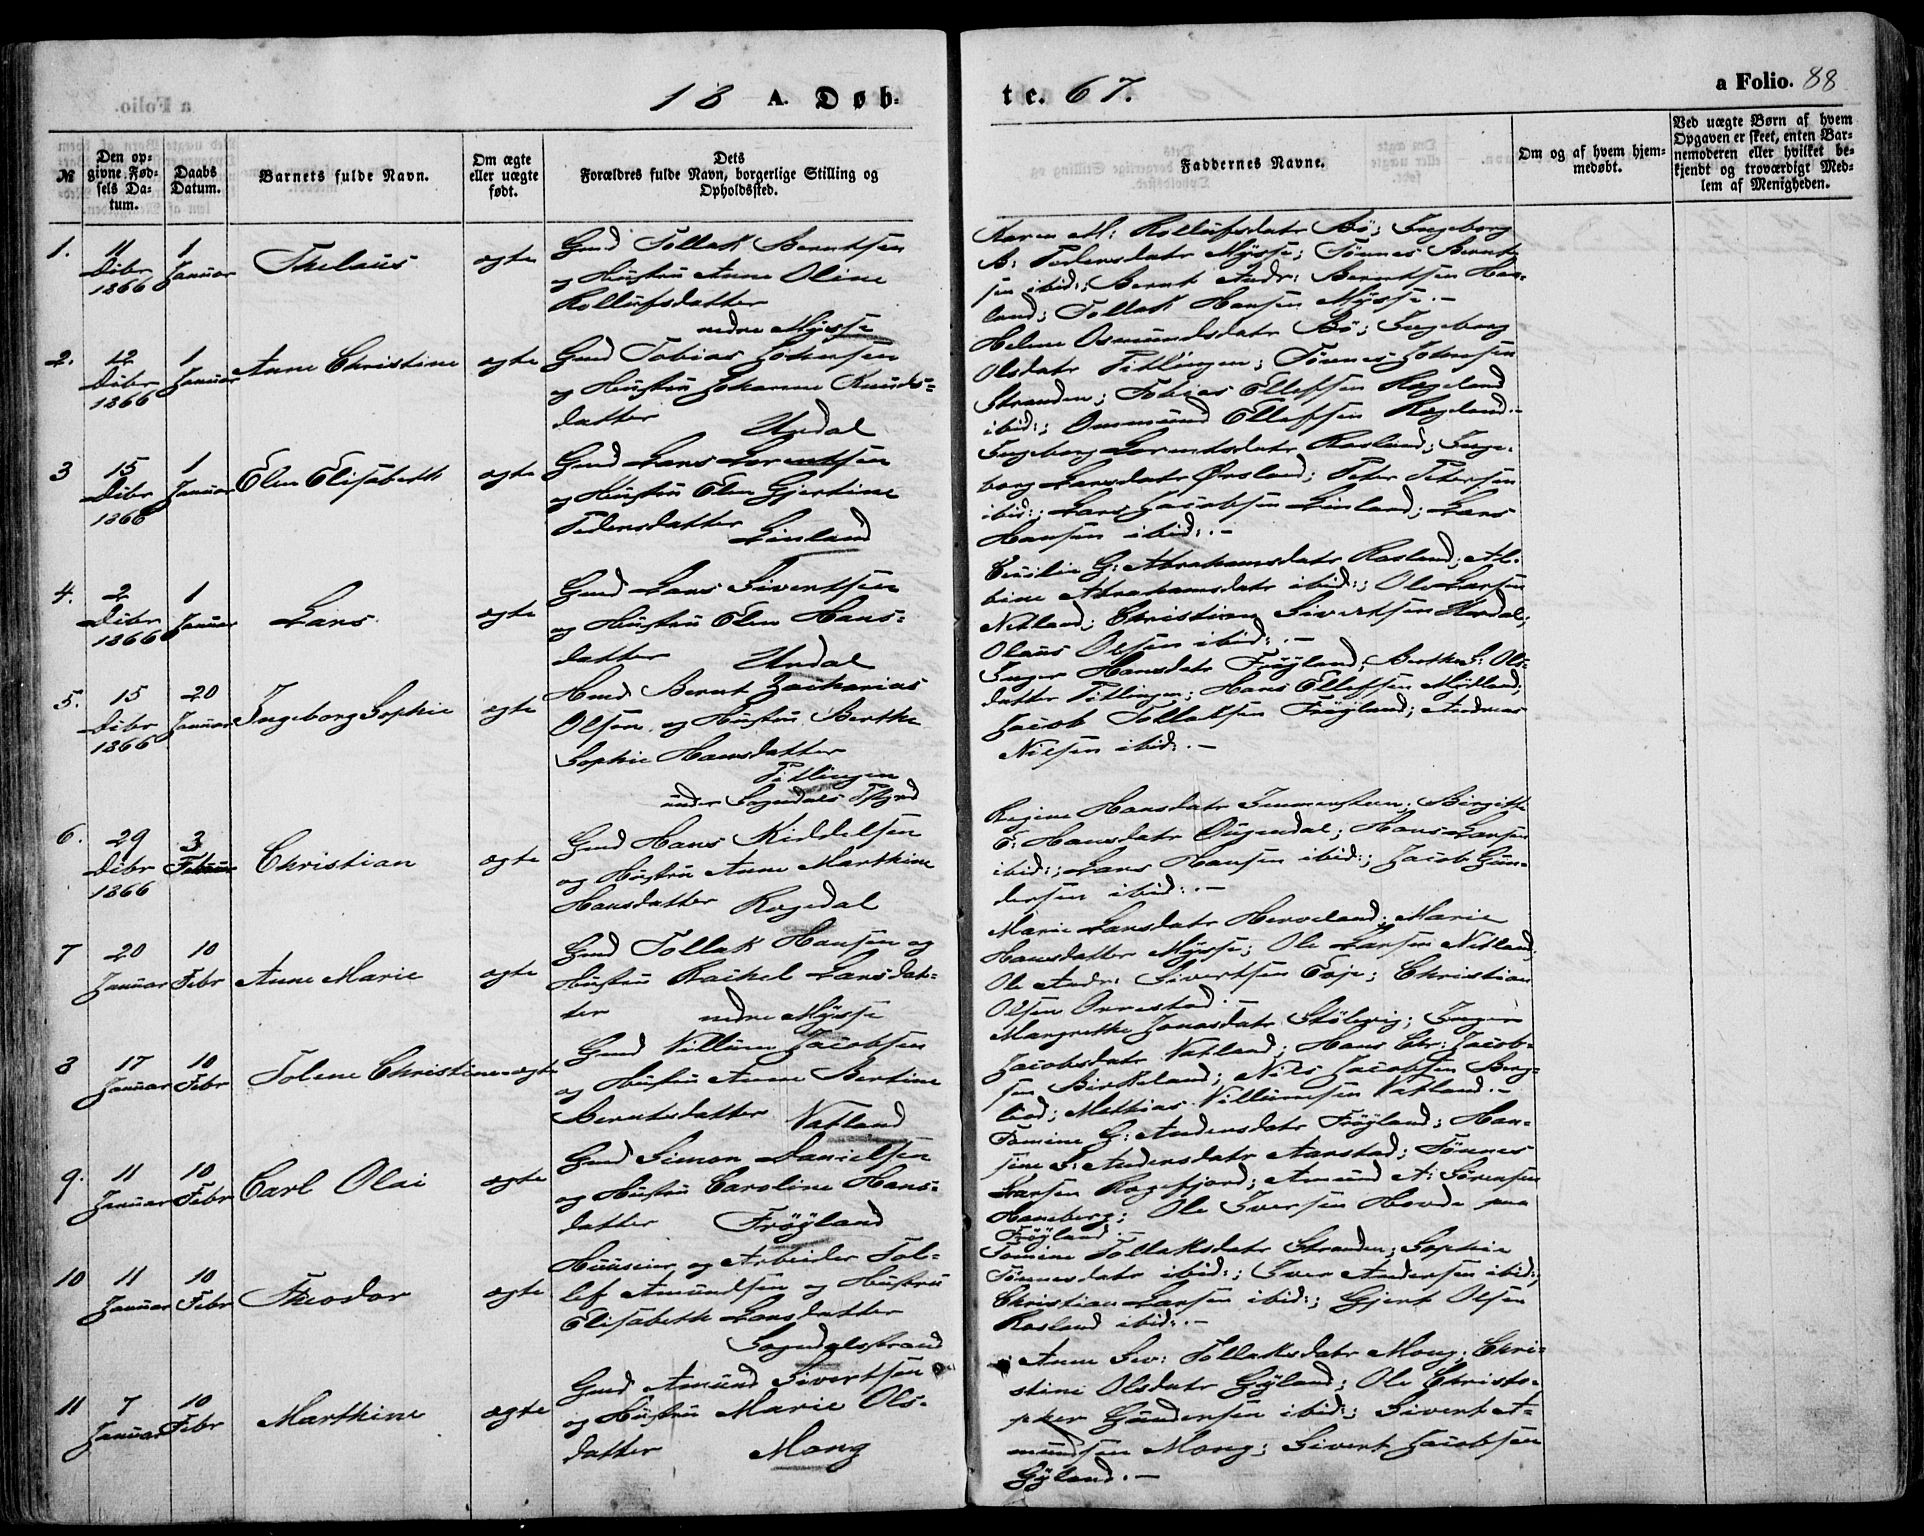 18 A. Døb-
te. 67.
a Folio. 88
№
Den op-
givne Fød-
sels Da-
tum.
Daabs
Datum.
Barnets fulde Navn.
Om ægte
eller uægte
født.
Dets
Forældres fulde Navn, borgerlige Stilling og
Opholdssted.
Faddernes Navne.
Om og af hvem hjem-
medøbt.
Ved uægte Børn af hvem
Opgaven er skeet, enten Bar-
nemoderen eller hvilket be-
kjendt og troværdigt Med-
lem af Menigheden.
1.
11
Dcbr
1866
1
Januar
Thelaus
ægte
Gmd Tollak Berntsen
og Hustru Anne Oline
Rollufsdatter
nedre Mysse
Karen M: Rollufsdatr Bö; Ingeborg
B: Pedersdatr Mysse; Tönnes Bernt-
sen ibid:; Bernt Andr: Berntsen Hau-
land; Tollak Hansen Mysse.-
2.
12
Dcbr
1866
1
Januar
Anne Christine
ægte
Gmd Tobias Johnsen
og Hustru Johanne Knuds-
datter
Urdal
Helene Osmundsdatr Bö; Ingeborg
Olsdatr Titlingen; Tönnes Johnsen
Stranden; Tobias Ellefsen Rægeland
ibid:; Ommund Ellefsen Rægeland.-
3
15
Dcbr
1866
1
Januar
Elen Elisabeth
ægte
Gmd Lars Lorentsen
og Hustru Elen Gjertine
Pedersdatter
Linland
Ingeborg Lorentsdatr Rosland; Inge-
borg Larsdatr Ørsland; Peter Petersen
ibid:; Lars Jacobsen Linland; Lars
Hansen ibid:.-
4.
2
Dcbr
1866
1
Januar
Lars
ægte
Gmd Lars Sivertsen
og Hustru Elen Hans-
datter
Urdal
Cecilie G: Abrahamsdatr Rosland; Al-
bine Abrahamsdatr ibid:; Ole Larsen
Netland; Christian Sivertsen Urdal;
Olaus Olsen ibid:.-
5.
15
Dcbr
1866
20
Januar
Ingeborg Sophie
ægte
Hmd Bernt Zacharias
Olsen og Hustru Berthe
Sophie Hansdatter
Titlingen
under Sogndals Pgjd
Inger Hansdatr Fröyland; Berthe S: Ols-
datter Titlingen; Hans Ellefsen Mydland;
Jacob Tollaksen Fröyland; Andreas
Nilsen ibid:.-
6.
29
Dcbr
1866
3
Februar
Christian
ægte
Gmd Hans Kiddelsen
og Hustru Anne Marthine
Hansdatter Rægedal
Regine Hansdatr Immenstren; Birgitte
E: Hansdatr Öugendal; Hans Larsen
ibid:; Lars Hansen ibid:; Jacob Gun-
dersen ibid:.-
7
20
Januar
10
Febr
Anne Marie
ægte
Gmd Tollak Hansen og
Hustru Rachel Larsdat-
ter
nedre Mysse
Marie Larsdatr Herveland; Marie
Hansdatter Mysse; Ole Larsen Netland;
Ole Andr: Sivertsen Eeje; Christian
Olsen Orrestad.-
8
17
Januar
10
Febr
Tolene Christine
ægte
Gmd Villum Jacobsen
og Hustru Anne Bertine
Berntsdatter
Vatland
Margrethe Jonasdatr Stölevig; Inger
Jacobsdatr Vatland; Hans Chr: Jacob-
sen Birkeland; Nils Jacobsen Berg-
lind; Mathias Villumsen Vatland.-
9.
11
Januar
10
Febr
Carl Olai
ægte
Gmd Simon Danielsen
og Hustru Caroline Hans-
datter
Fröyland
Tomine G: Andersdatr Fröyland; Han-
sine S: Andersdatr Aarstad; Tönnes
Larsen Ragefjord; Amund A: Sörensen
Haneberg; Ole Iversen Hovde paa
Fröyland.-
10
11
Januar
10
Febr
Theodor
ægte
Huusmr og Arbeider Tol-
lef Amundsen og Hustru
Elisabeth Larsdatter
Sogndalsstrand
Tomine Tollaksdatr Stranden; Sophie
Tönnesdatr ibid:; Iver Andersen ibid:;
Christian Larsen ibid:; Gjert Olsen
Rosland ibid:.-
11
7
Januar
10
Febr
Marthine
ægte
Gmd Amund Sivertsen
og Hustru Marie Ols-
datter
Mong
Anne Sev: Tollaksdatr Mong; Chri-
stine Olsdatr Gyland; Ole Christo-
pher Gundersen ibid:; Sivert A-
mundsen Mong; Sivert Jacobsen
Gyland.-